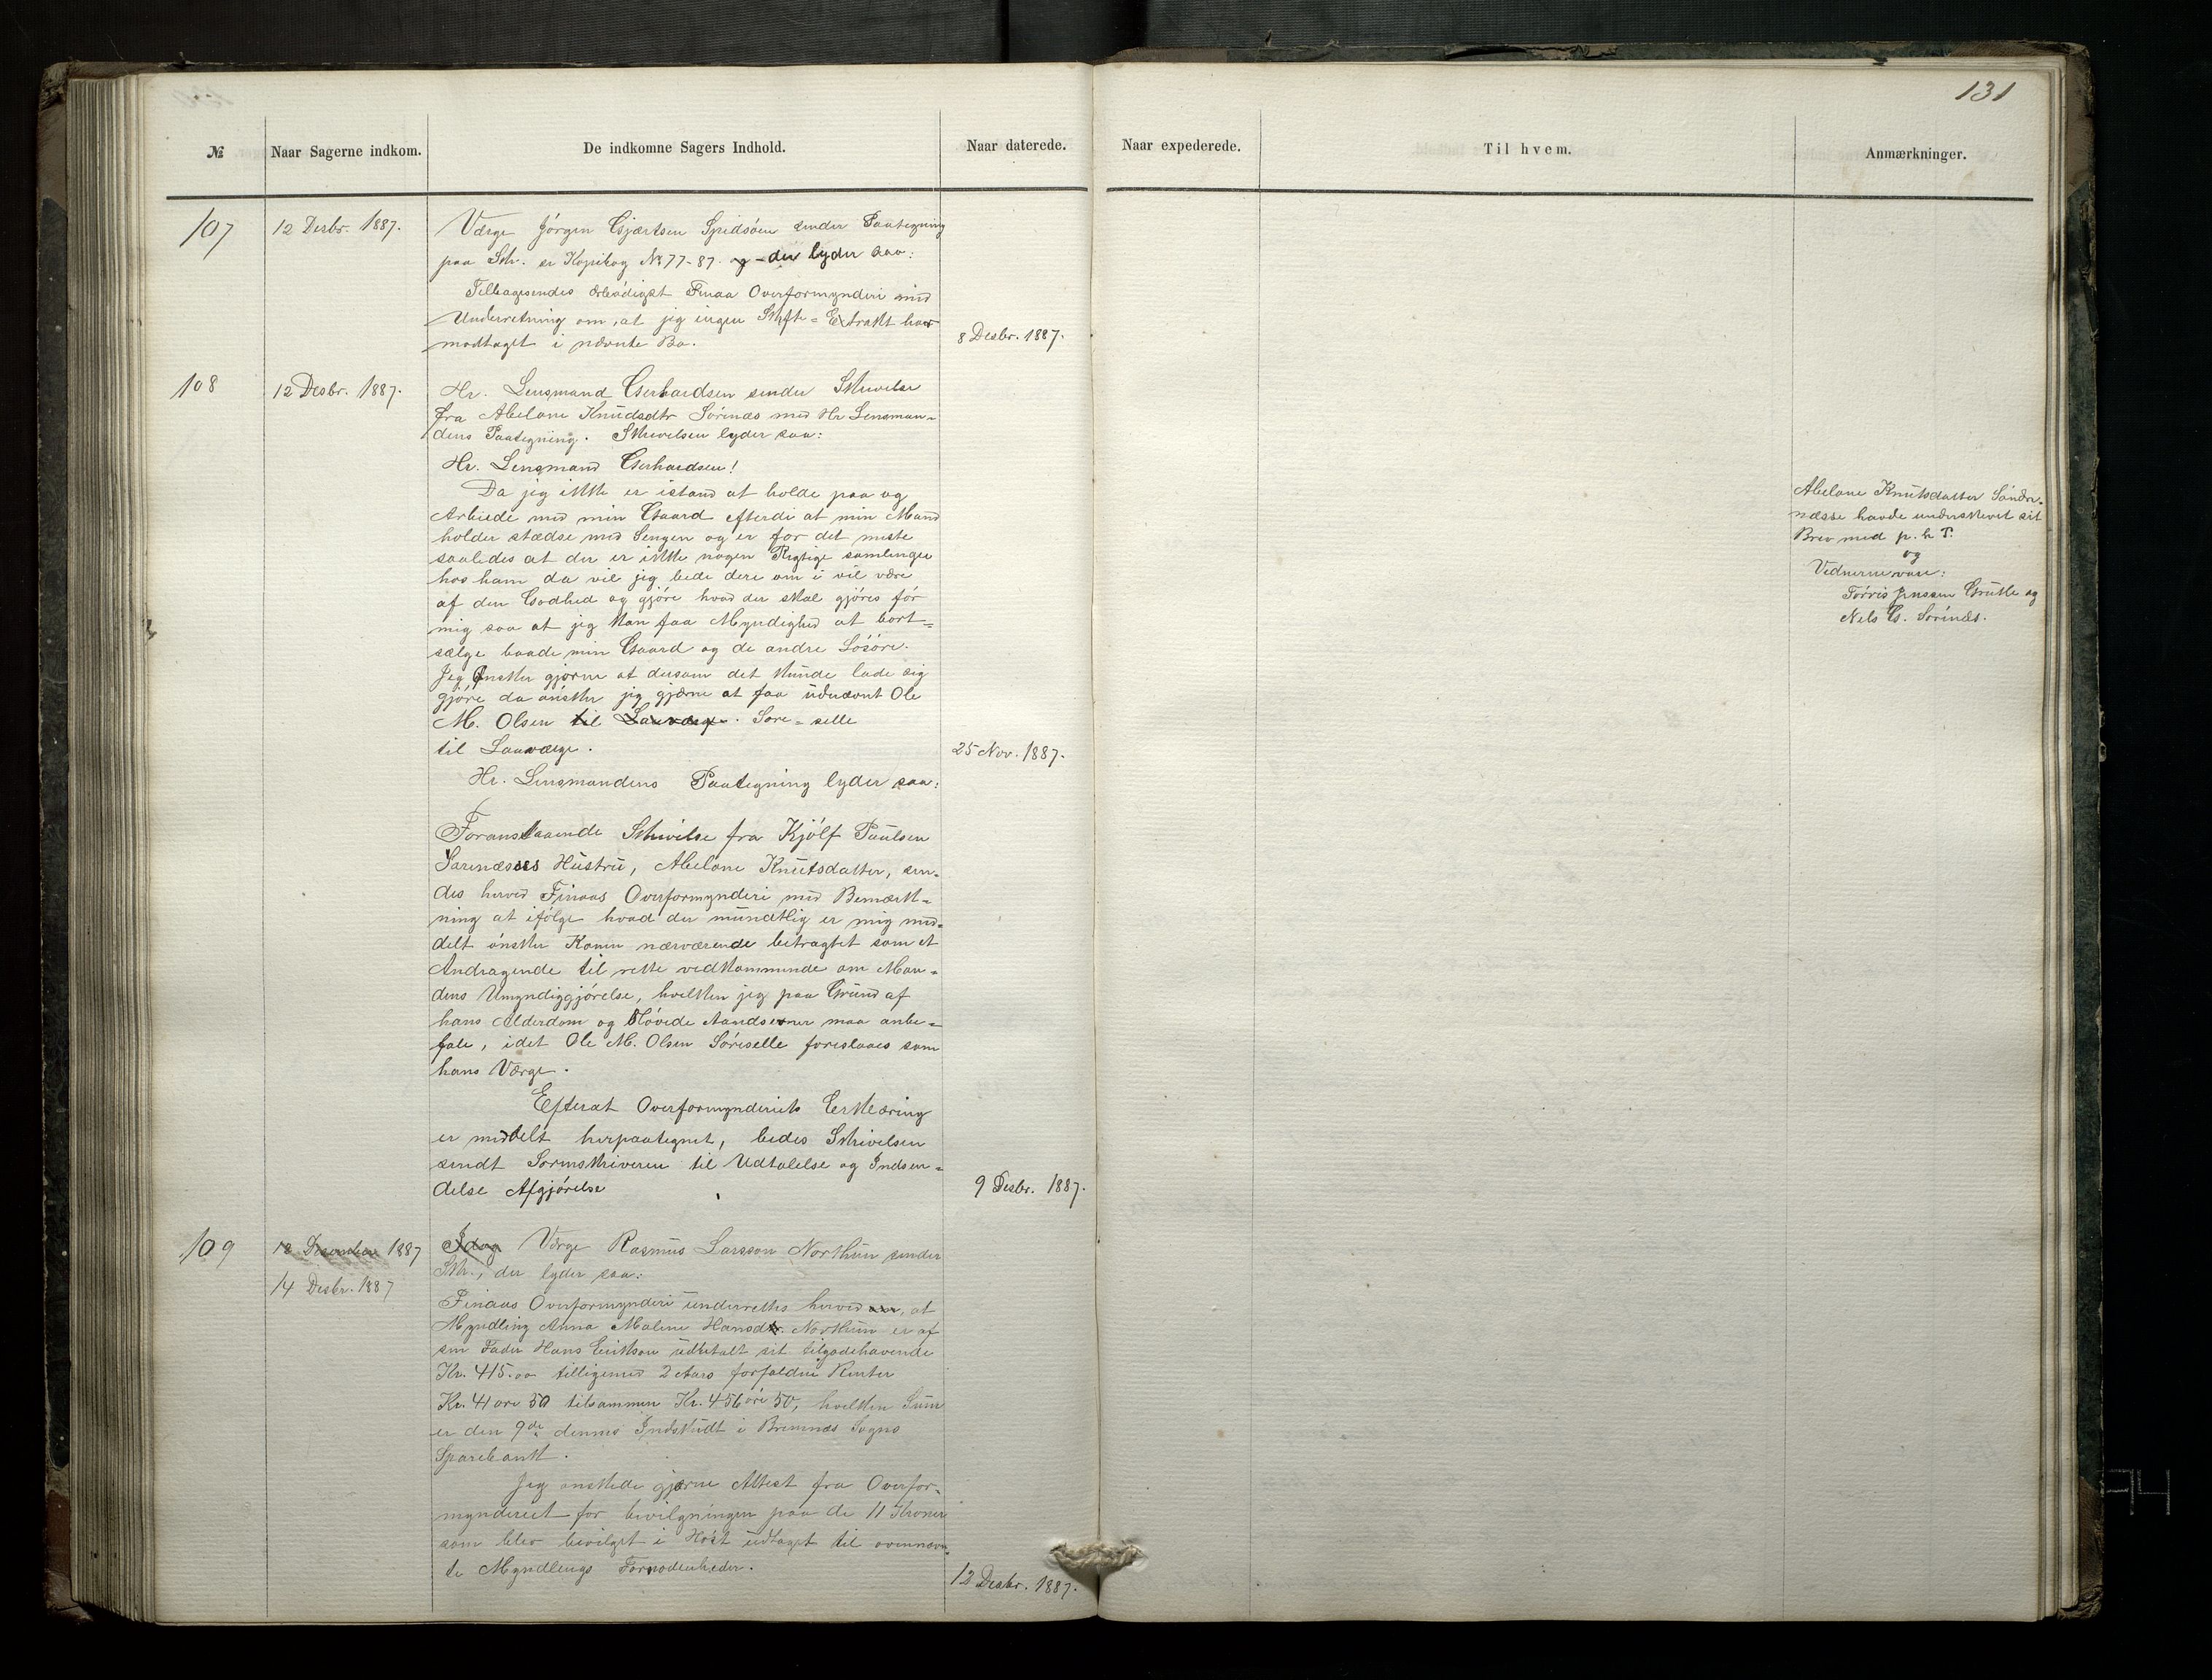 131
№
Naar Sagerne indkom.
De indkomne Sagers Indhold.
Naar daterede.
Naar expederede.
Til hvem.
Anmærkninger.
107
12 Desbr. 1887.
Værge Jørgen Gjærtsen Spidsøen sender Paategning
paa Skr. se Kopibog № 77-87. og - der lyder saa:
Tilbagesendes ærbødigst Finaa Overformynderi med
Underretning om, at jeg ingen Skifte-Extrakt har
modtaget i nævnte Bo.
8 Desbr. 1887.
108
12 Desbr. 1887.
Hr. Lensmand Gerhardsen sender Skrivelse
fra Abelone Knudsdtr Sørnæs med Hr Lensman-
dens Paategning. Skrivelsen lyder saa:
Hr. Lensmand Gerhardsen!
Da jeg ikke er istand at holde paa og
Arbeide med min Gaard efterdi at min Mand
holder stædse med Sengen og er for det meste
saaledes at der er ikke nogen Rigtige samlinger
hos ham da vil jeg bede dere om i vil være
af den Godhed og gjøre hvad der skal gjøres før
mig saa at jeg kan faa Myndighed at bort=
sælge baade min Gaard og de andre Løsøre.
Jeg Ønsker gjerne at dersom det kunde lade sig
gjøre da ønsker jeg gjærne at faa udnævnt Ole
M. Olsen til Lauværge. Sore-selle
til Lauværge.
25 Nov. 1887.
Hr. Lensmandens Paategning lyder saa:
Foranstaaende Skrivelse fra Kjølf Paulsen
Sørenæsses Hustru, Abelone Knutsdatter, sen-
des herved Finaas Overformynderi med Bemærk-
ning at ifølge hvad der mundtlig er mig med-
delt ønsker Konen nærværende betragtet som et
Andragende til rette vedkommende om Man-
dens Umyndiggjørelse, hvilken jeg paa Grund af
hans Alderdom og sløvede Aandsevner maa anbe-
fale, idet Ole M. Olsen Søreselle foreslaaes som
hans Værge.
Efterat Overformynderiets Erklæring
er meddelt herpaategnet, bedes Skrivelsen
sendt Sorenskriveren til Udtalelse og Indsen-
delse Afgjørelse
9 Desbr. 1887.
Abelone Knutsdatter Søndre-
næsse havde underskrevet sit
Brev med p. h P.
og
Vidnerne vare:
Tørris Jenssen Grutle og
Nels G. Sørinæs.
109
12 December 1887
14 Desbr. 1887
Idag Værge Rasmus Larsson Norhun sender
Skr., der lyder saa:
Finaas Overformynderi underrettes herved om, at
Myndling Anna Maline Hansdtr. Norhun er af
sin Fader Hans Erikson udbetalt sit tilgodehavende
Kr. 415.00 tilligemed 2 Aars forfaldne Renter
Kr. 41 øre 50 tilsammen Kr. 456 øre 50, hvilken Sum
er den 9de dennes Indskudt i Bremnæs Sogns
Sparebank.
Jeg ønskede gjærne Attest fra Overfor-
mynderiet for bevilgningen paa de 11 Kroner
som blev bevilget i Høst udtaget til ovennævn-
te Myndlings Fornødenheder.
12 Desbr. 1887.